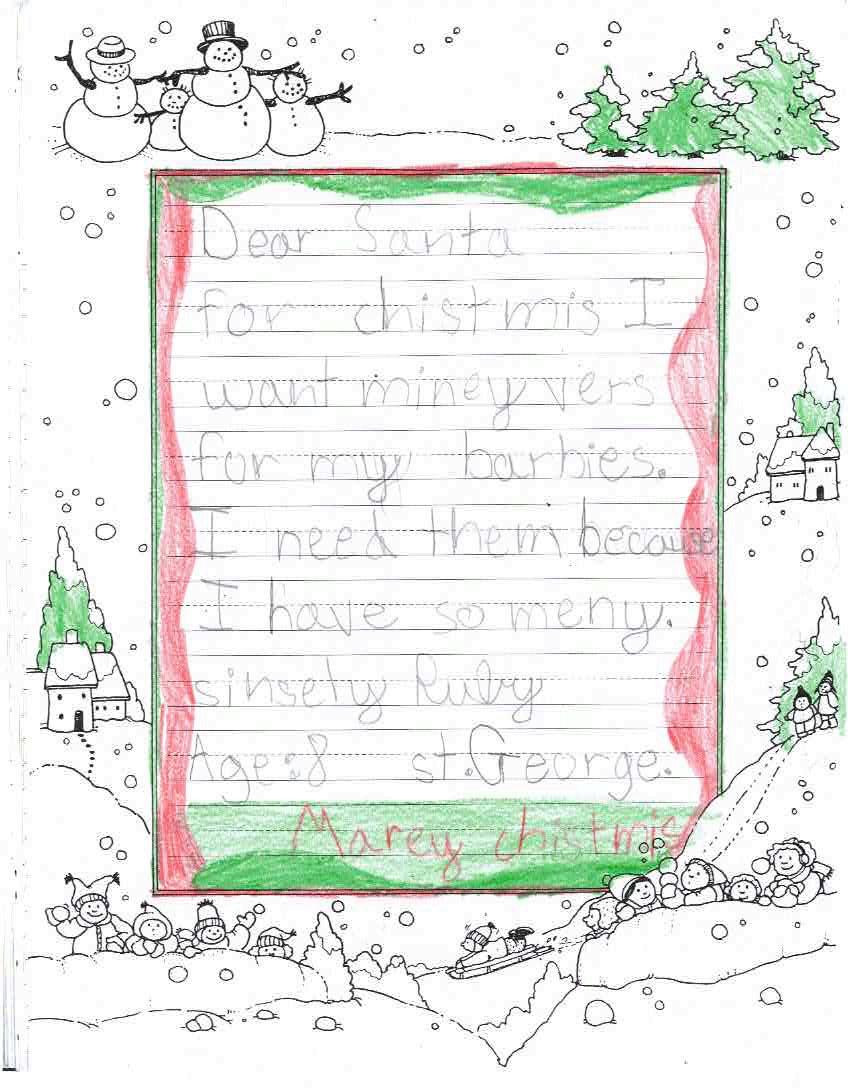 Dear Santa
for chistmis I
want miney vers
for my barbies.
I need them because
I have so meny.
sinsety Ruby
Age:8 st.George.
Marey chistmis